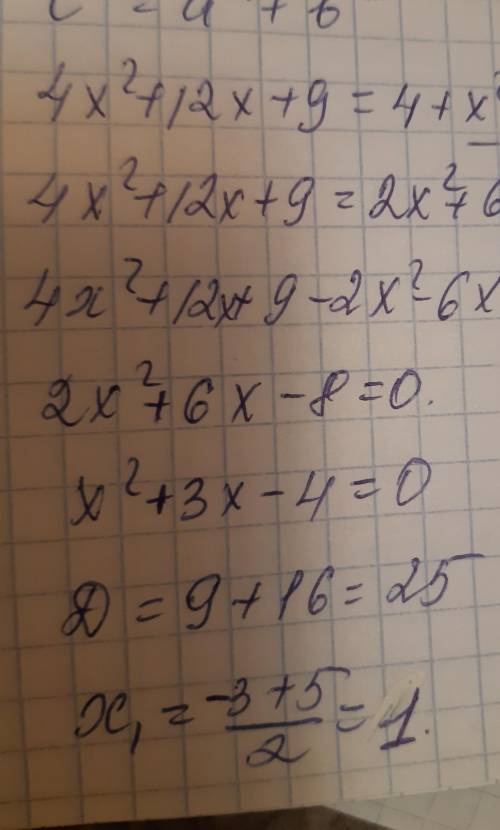 4x²+12x+9=4+x
4x²+12x+9=2x²+6
4x²+12x+9-2x²-6x
2x²+6x-8=0.
x²+3x-4=0
D=9+16=25
x₁=\frac{-3+5}{2}=1.